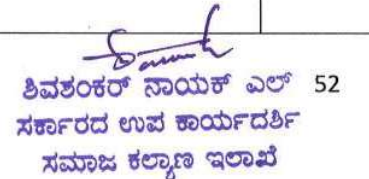 ಶಿವಶಂಕರ್ ನಾಯಕ್ ಎಲ್ 52
ಸರ್ಕಾರದ ಉಪ ಕಾರ್ಯದರ್ಶಿ
ಸಮಾಜ ಕಲ್ಯಾಣ ಇಲಾಖೆ